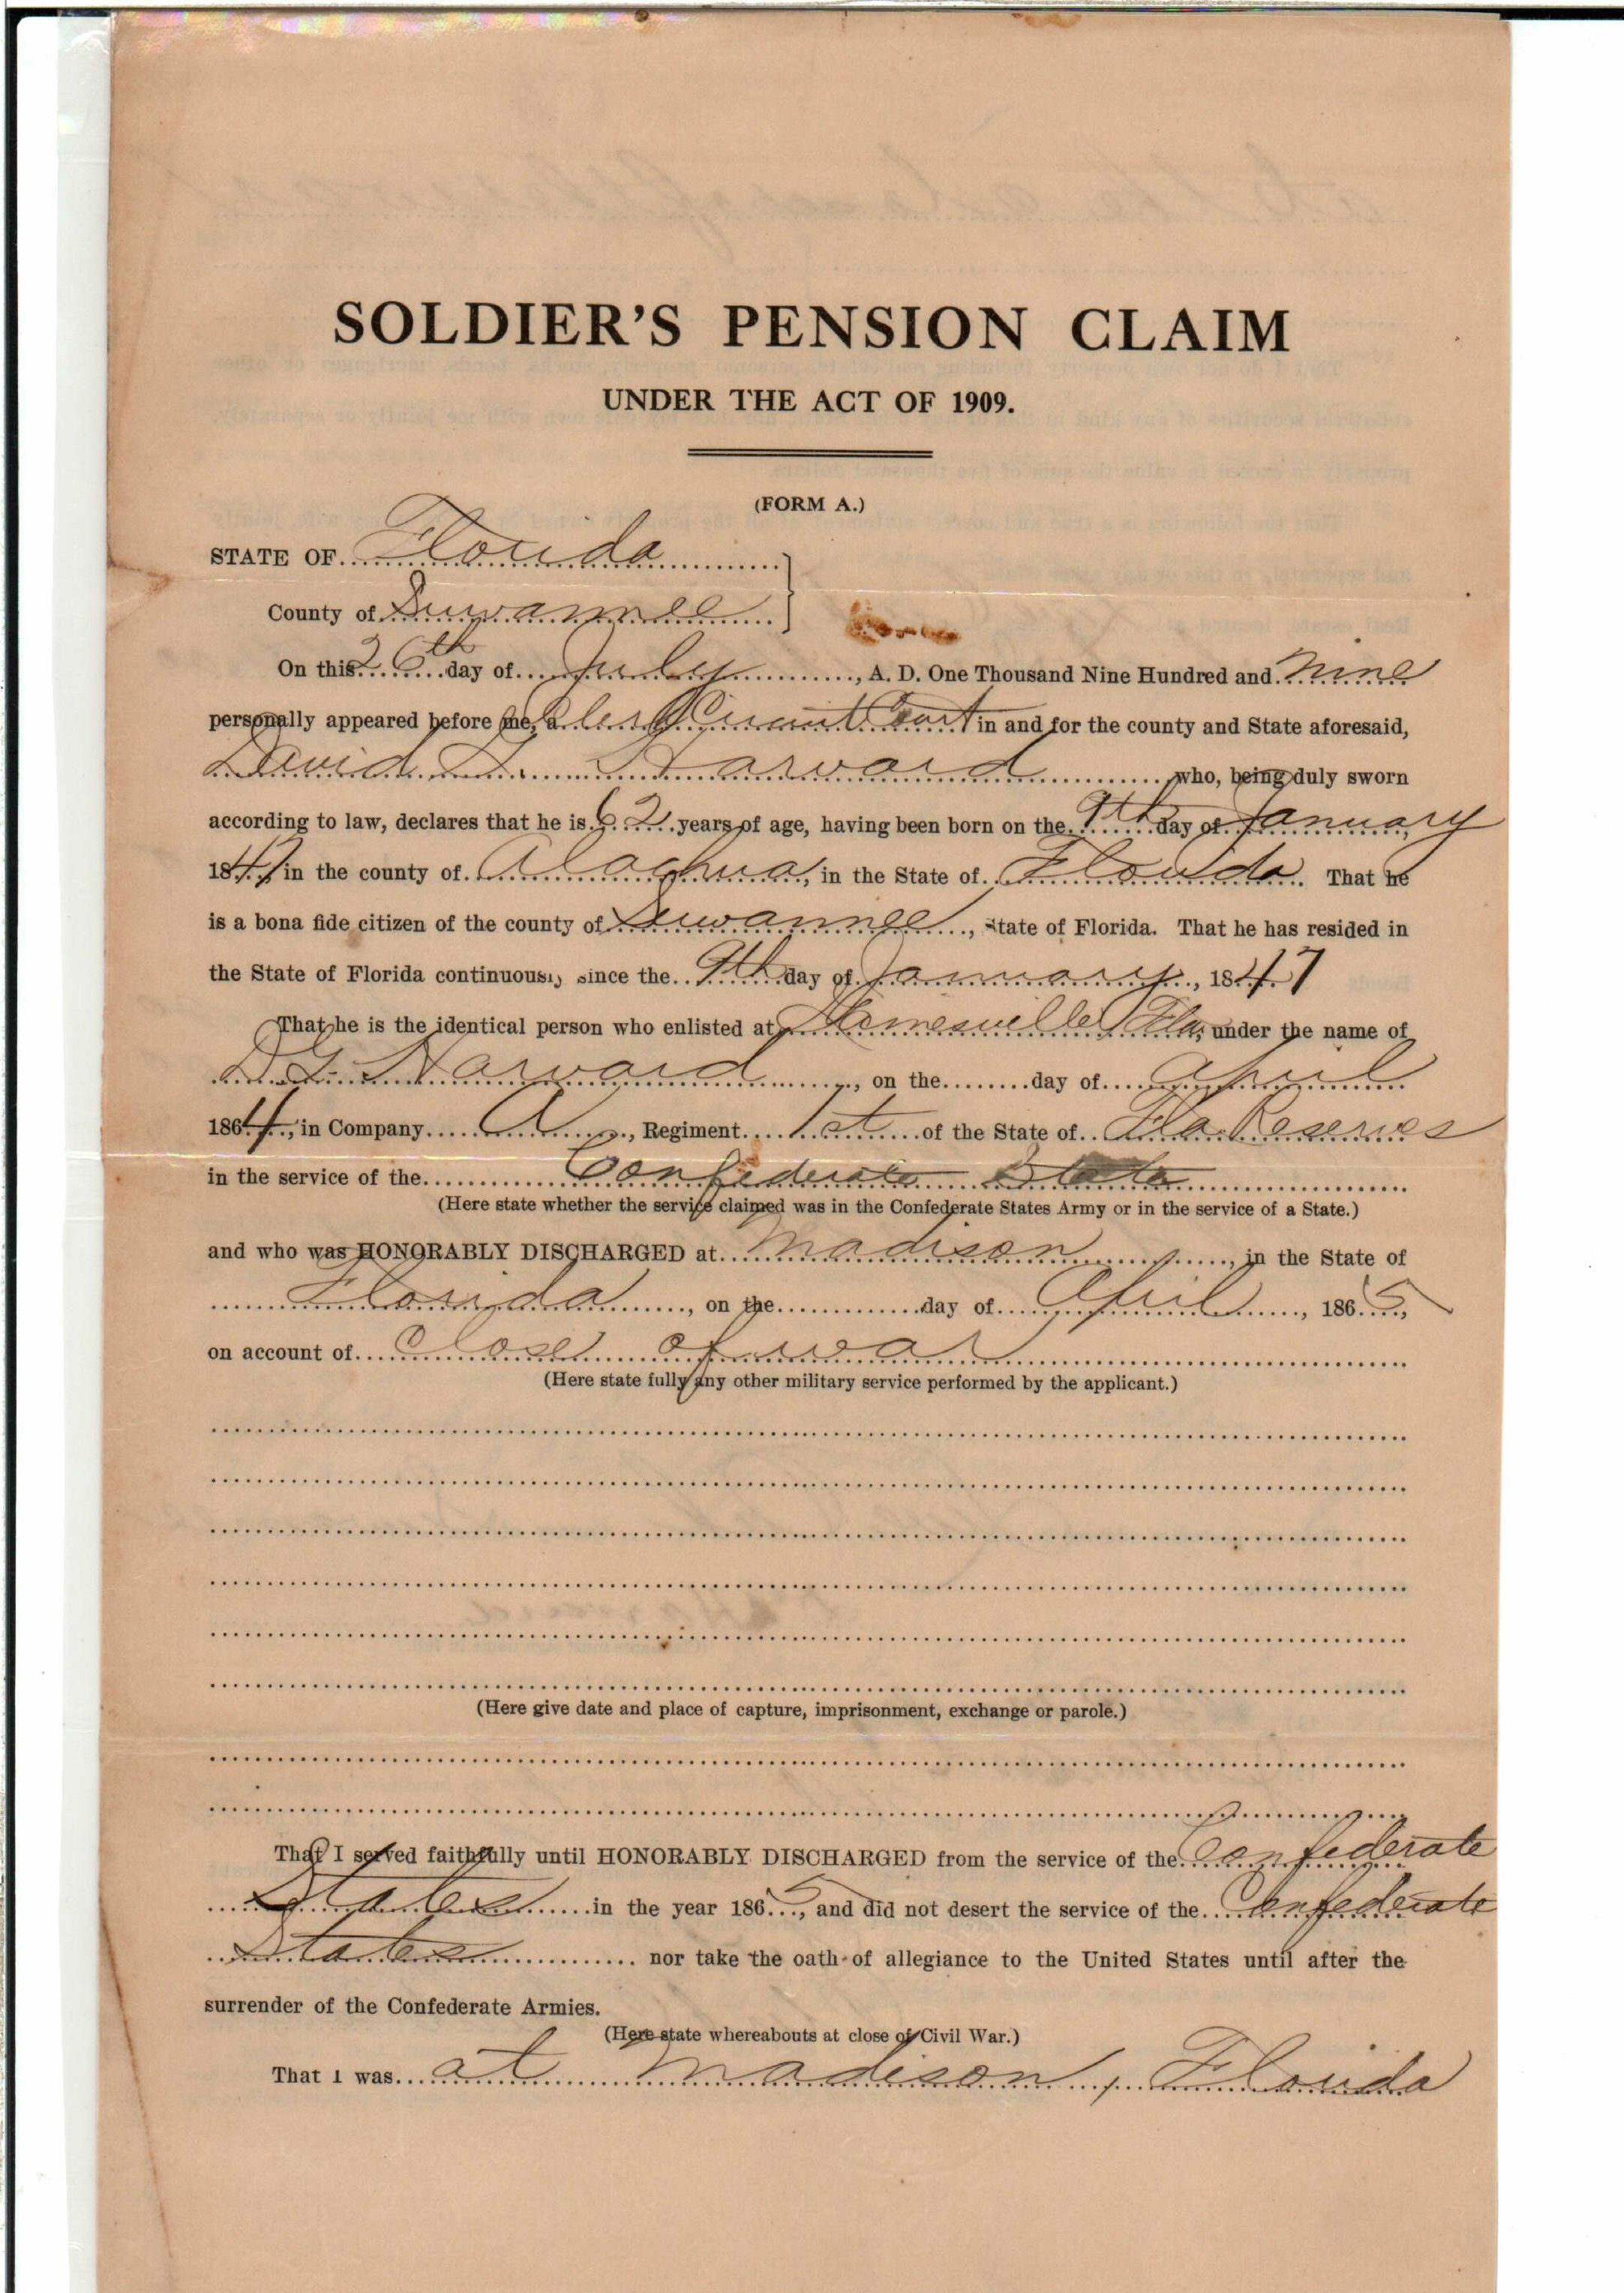 SOLDIER'S PENSION CLAIM
UNDER THE ACT OF 1909.
(FORM A.)
STATE OF Florida
County of Suwannee
On this 26th day of July, A. D. One Thousand Nine Hundred and nine
personally appeared before me, a Clerk Circuit Court in and for the county and State aforesaid,
David G. Harvard who, being duly sworn
according to law, declares that he is 62 years of age, having been born on the 9th day of January
1847 in the county of Alachua, in the State of Florida. That he
is a bona fide citizen of the county of Suwannee, State of Florida. That he has resided in
the State of Florida continuously since the 9th day of January, 1847
That he is the identical person who enlisted at Fla, under the name of
D G Harvard, on the day of April
1864, in Company A, Regiment 1st of the State of Fla Reserves
in the service of the Confederate State
(Here state whether the service claimed was in the Confederate States Army or in the service of a State.)
and who was HONORABLY DISCHARGED at Madison, in the State of
Florida, on the day of April, 1865,
on account of Close of war
(Here state fully any other military service performed by the applicant.)
(Here give date and place of capture, imprisonment, exchange or parole.)
That I served faithfully until HONORABLY DISCHARGED from the service of the Confederate
States in the year 1865, and did not desert the service of the Confederate
States nor take the oath of allegiance to the United States until after the
surrender of the Confederate Armies.
(Here state whereabouts at close of Civil War.)
That I was at Madison, Florida